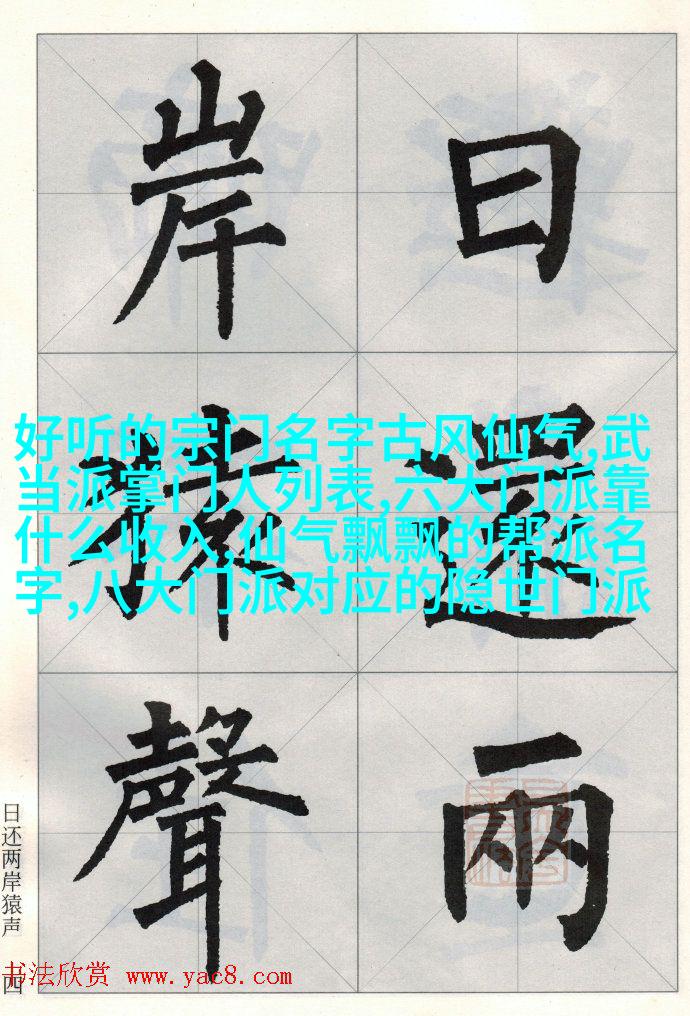 日還兩
岸猿聲
好听的宗门名字古风仙气,武
当派掌门人列表,六大门派靠
什么收入,仙气飘飘的帮派名
字,八大门派对应的隐世门派
日还两岸猿声
四
书法欣赏 www.yac8.com